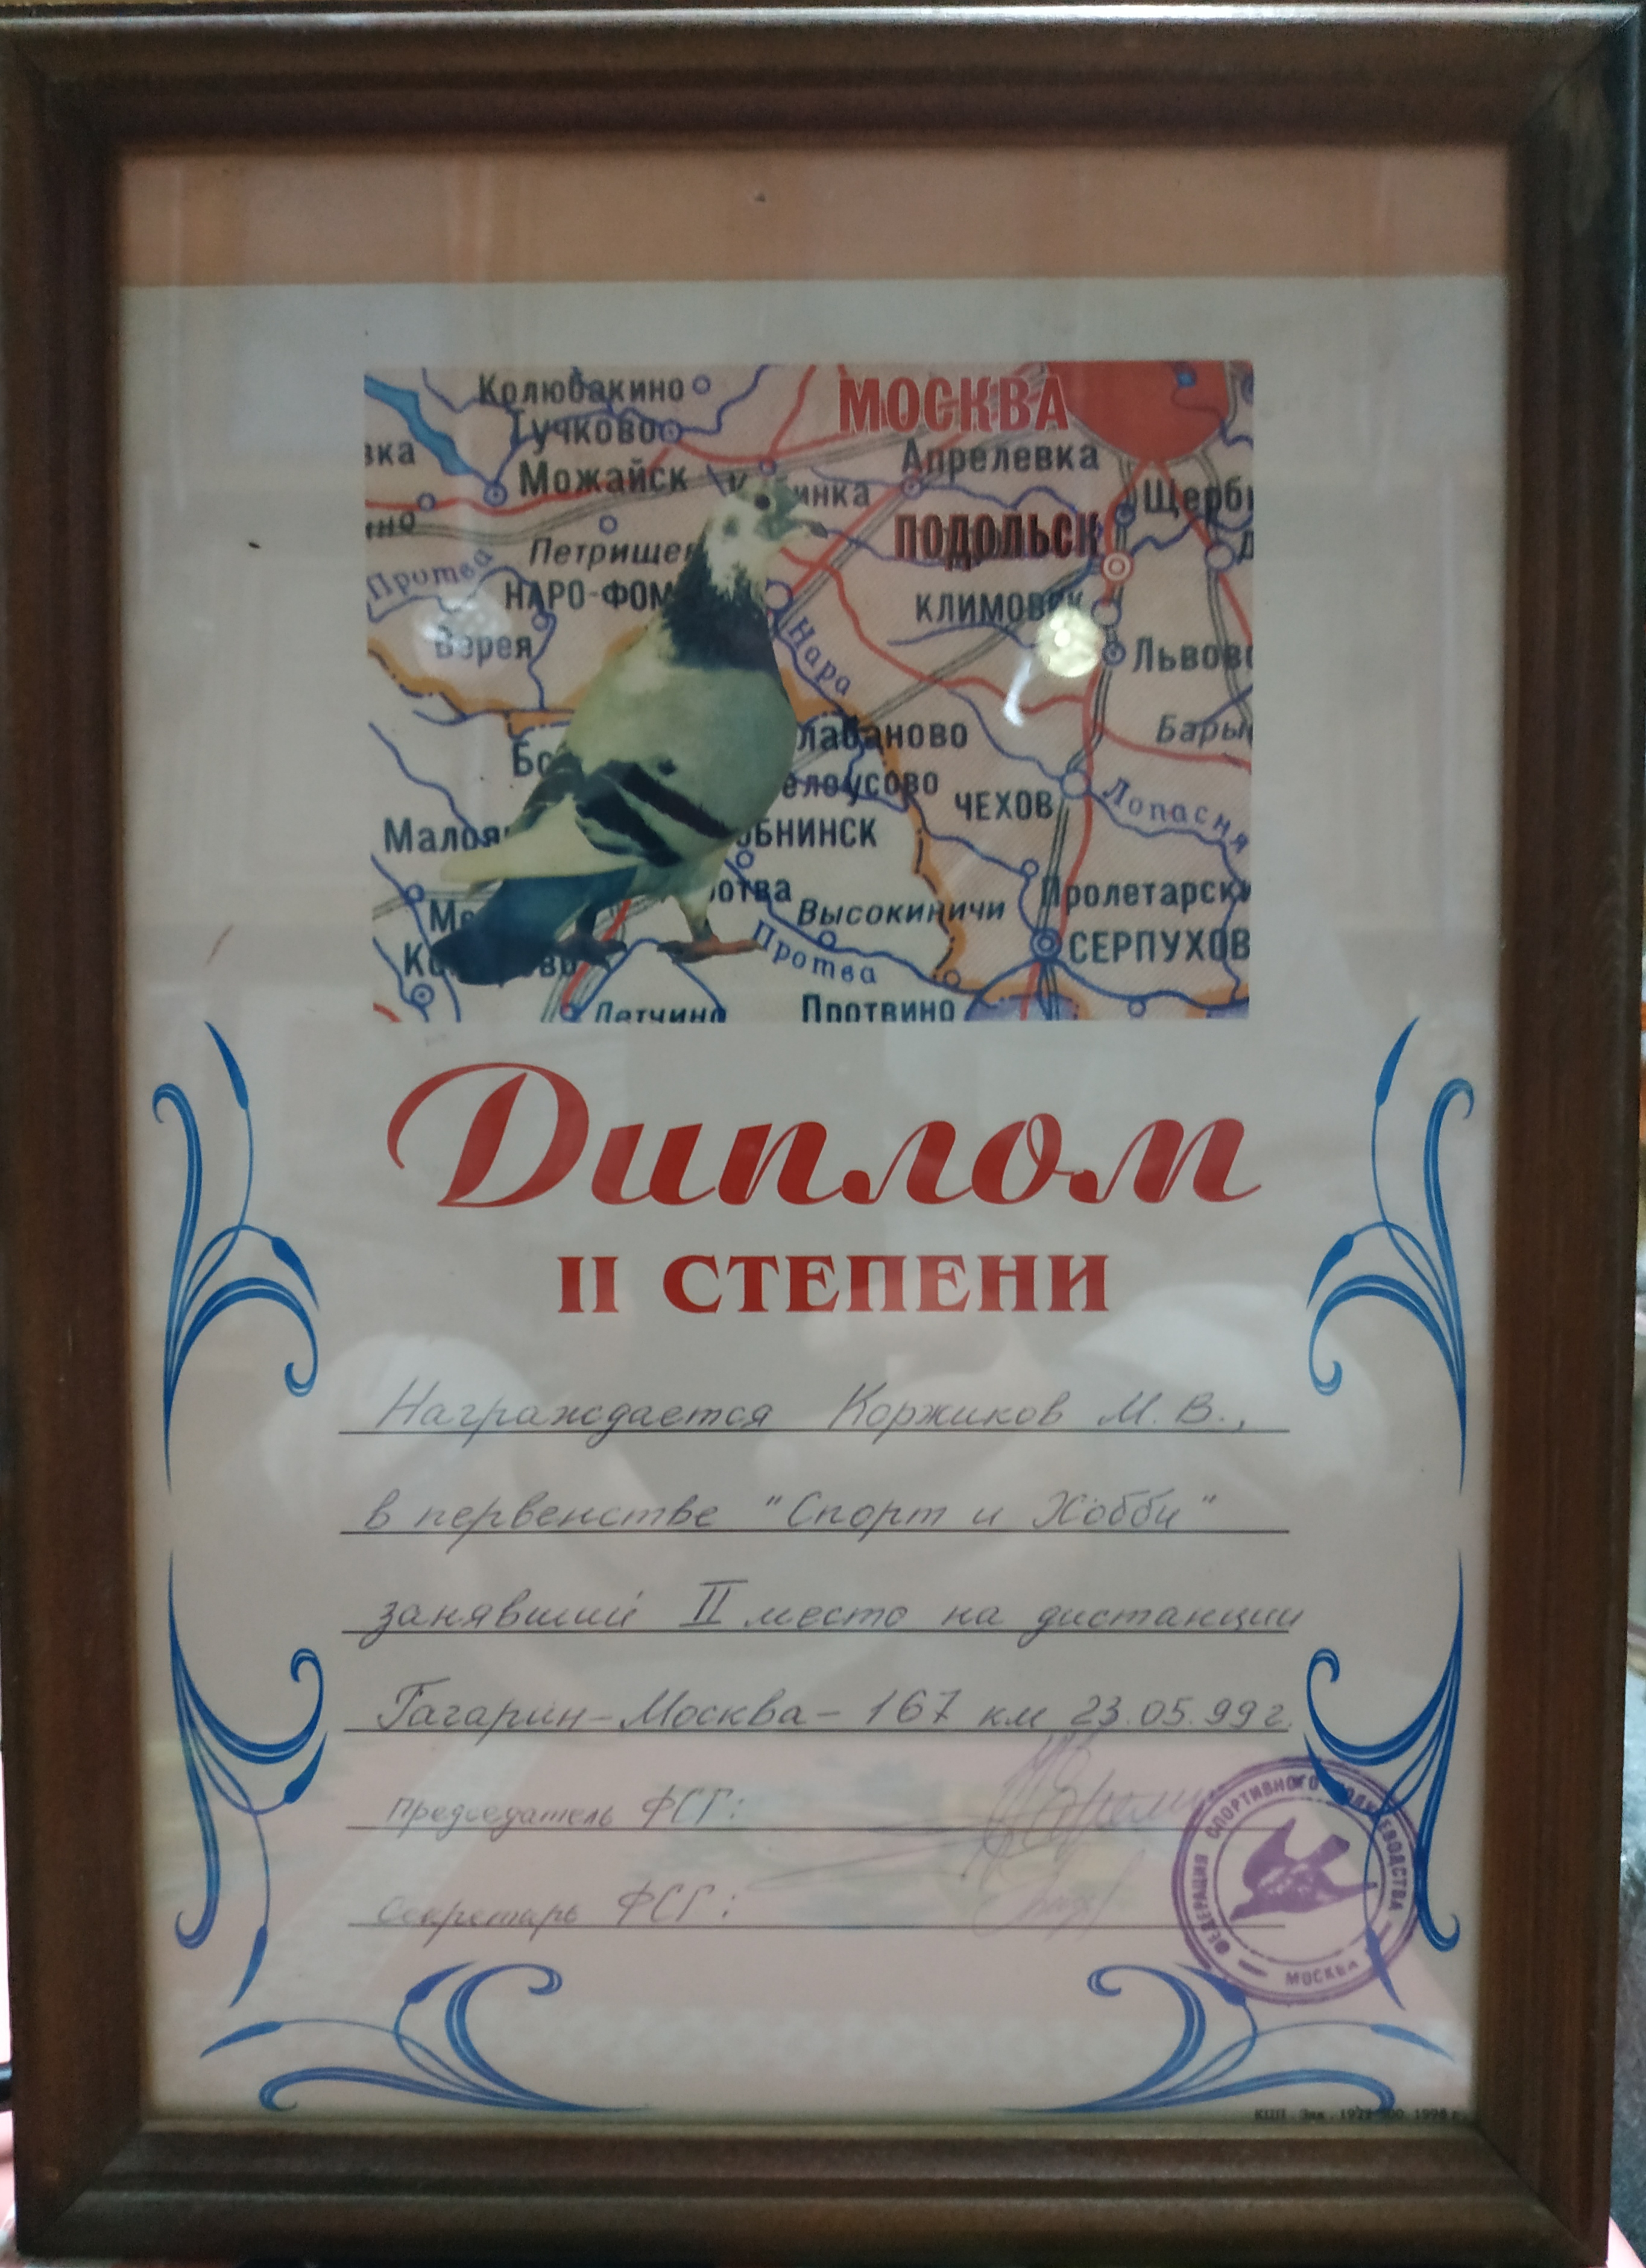 Колюбакино
МОСКВА
Тучково
Апрелевка
вка
Можайск
инка
Щерб
ино
ПОДОЛЬСК
Петрище
Протва
НАРО-ФОМ
КЛИМОВСК
Верея
Нара
Львов
Бары
Бо
лабаново
елоусово
ЧЕХОВ
Лопасня
Малоя
ОБНИНСК
отва
Высокиничи
Пролетарски
Протва
СЕРПУХОВ
Детчино
Протвино
Диплом
II СТЕПЕНИ
Награждается Коржиков М. В.,
в первенстве "Спорт и Хобби"
занявший II место на дистанции
Гагарин-Москва- 167 км 23.05.99 г.
Председатель ФСГ:
Секретарь ФСГ:
ФЕДЕРАЦИЯ СПОРТИВНОГО ГОЛУБЕВОДСТВА
МОСКВА